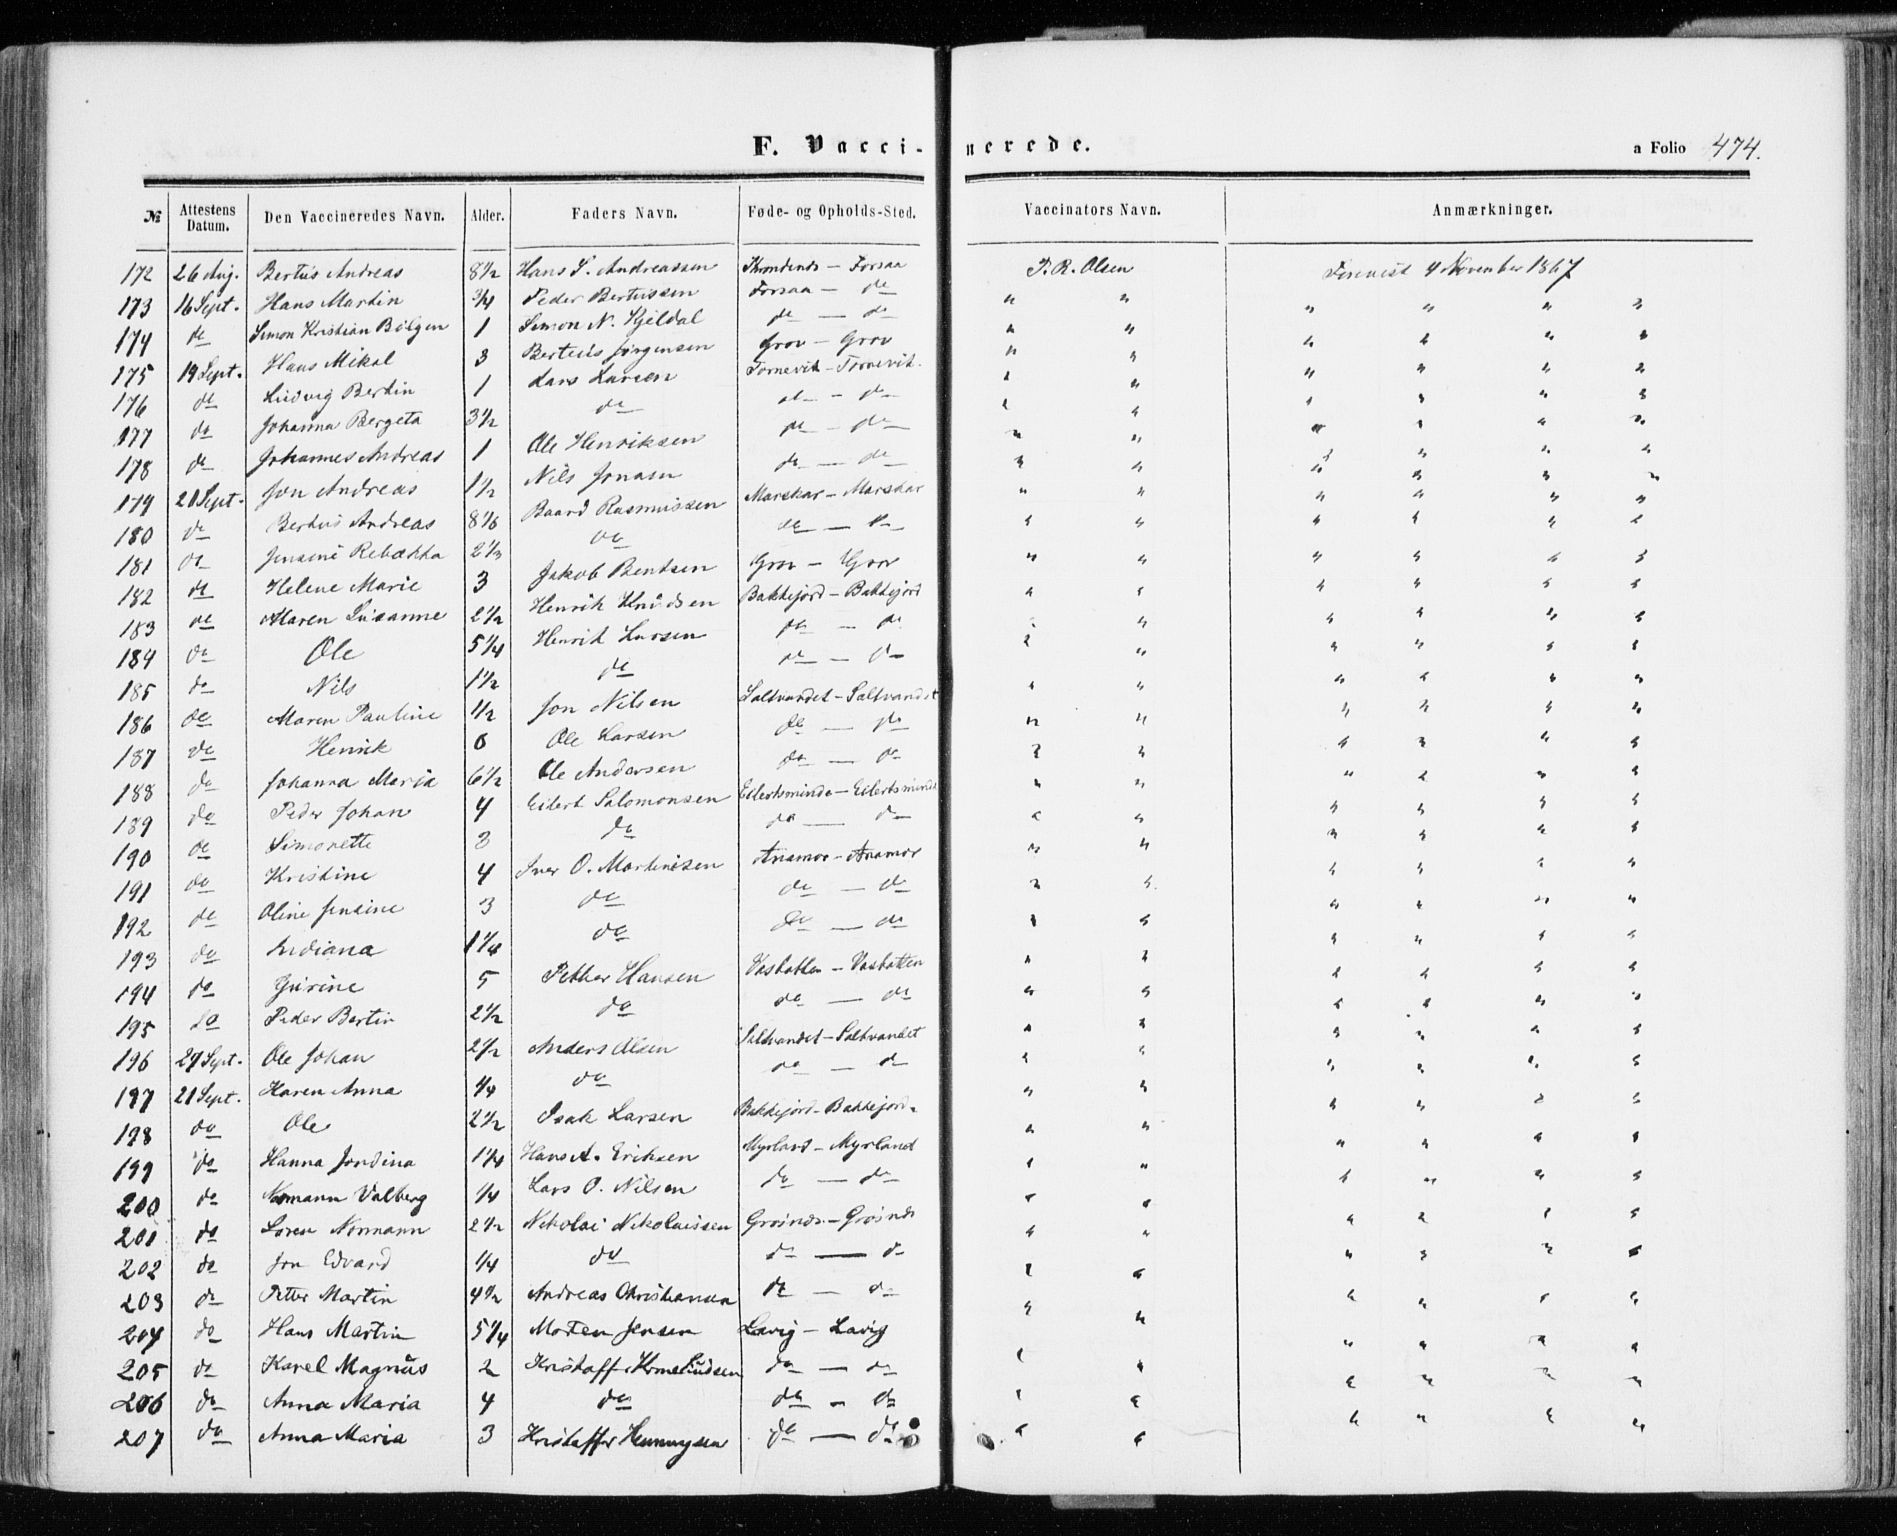 F. Vaccinerede. a Folio 474.
№ Attestens Datum. Den Vaccineredes Navn. Alder. Faders Navn. Føde- og Opholds-Sted. Vaccinators Navn. Anmærkninger.
172 26 Aug. Bertus Andreas 8 1/2 Hans S. Andreassen – Forsaa P. R. Olsen 4 November 1867
173 16 Sept. Hans Martin 3/4 Peder Bertussen Forsaa – do " " " " " "
174 do Simon Kristian Bölgen 1 Simon N. Kjeldal do – do " " " " " "
175 19 Sept. Hans Mikal 3 Berteus Jørgensen Grov – Grov " " " " " "
176 do Ludvig Bertin 1 Lars Larsen Tornevik – Tornevik. " " " " " "
177 do Johanna Bergeta 3 1/2 do do – do " " " " " "
178 do Johannes Andreas 1 Ole Henriksen do – do " " " " " "
179 21 Sept. Jon Andreas 1 1/2 Nils Jonasen do – do " " " " " "
180 do Bertus Andreas 8 1/6 Baard Rasmussen Marskar – Marskar " " " " " "
181 do Jensine Rebækka 2 1/3 do do – do " " " " " "
182 do Helene Marie 3 Jakob Bentsen Grov – Grov " " " " " "
183 do Maren Susanne 2 1/2 Henrik Knudsen Bakkejord – Bakkejord " " " " " "
184 do Ole 5 1/4 Henrik Larsen do – do " " " " " "
185 do Nils 1 1/2 do do – do " " " " " "
186 do Maren Pauline 1/2 Jon Nilsen Saltvandet – Saltvandet " " " " " "
187 do Henrik 6 Ole Larsen do – do " " " " " "
188 do Johanna Maria 6 1/2 Ole Andersen do – do " " " " " "
189 do Peder Johan 4 Eilert Salomonsen Eilertsminde – Eilertsminde " " " " " "
190 do Simonette 3 do do – do " " " " " "
191 do Kristine 4 Iver O. Martinesen Anamor – Anamor " " " " " "
192 do Oline Jensine 3 do do – do " " " " " "
193 do Indiana 1 1/4 do do – do " " " " " "
194 do Gurine 5 Petter Hansen Vasbotten – Vasbotten " " " " " "
195 do Peder Bertin 2 1/2 do do – do " " " " " "
196 29 Sept. Ole Johan 2 1/2 Anders Olsen Saltvandet – Saltvandet " " " " " "
197 21 Sept. Karen Anna 1/4 do do – do " " " " " "
198 do Ole 2 1/2 Isak Larsen Bakkejord – Bakkejord. " " " " " "
199 do Hanna Jondina 1 1/4 Hans A. Eriksen Myrland – Myrland " " " " " "
200 do Normann Valberg 1/4 Lars O. Nilsen do – do " " " " " "
201 do Soren Normann 2 1/2 Nikolai Nikolaissen Grøinds – Grøinds " " " " " "
202 do Jon Edvard 1/4 do do – do " " " " " "
203 do Petter Martin 4 1/2 Andreas Christiansen do – do " " " " " "
204 do Hans Martin 5 1/4 Morten Jensen Lavig – Lavig " " " " " "
205 do Karel Magnus 2 Kristoff do – do " " " " " "
206 do Anna Maria 4 do do – do " " " " " "
207 do Anna Maria 3 Kristoffer Henningsen do – do " " " " " "